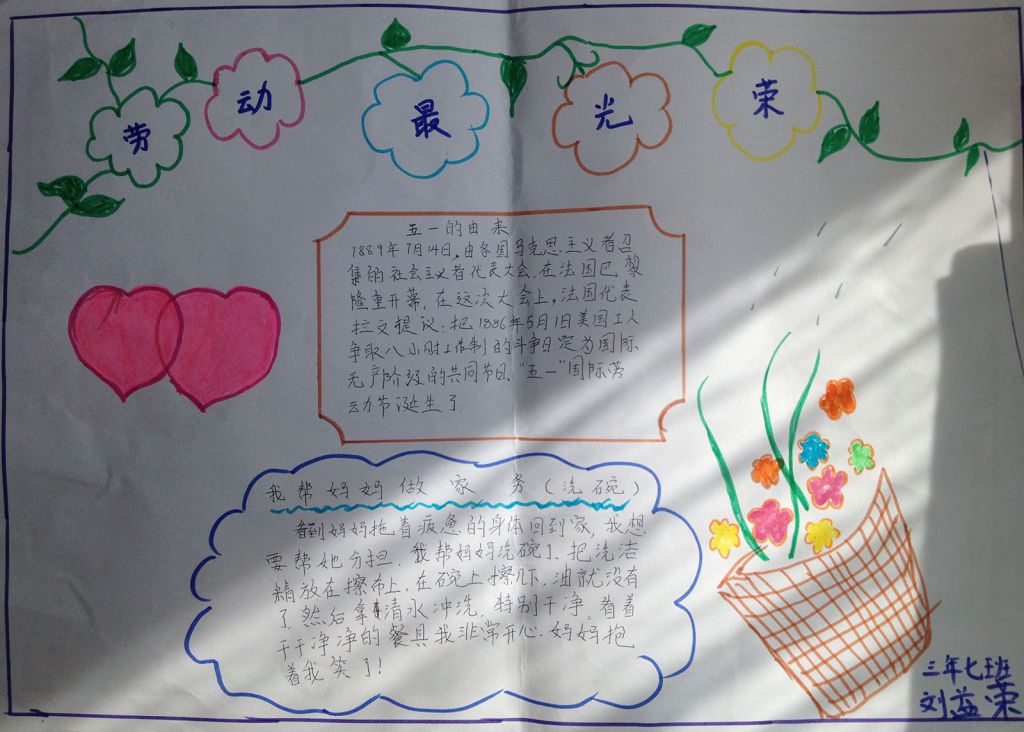 劳动最光荣
五一的由来
1889年7月14日,由各国马克思主义者召
集的社会主义者代表大会,在法国巴黎
隆重开幕.在这次大会上,法国代表
拉文提议:把1886年5月1日美国工人
争取八小时工作制的斗争日定为国际
无产阶级的共同节日、“五一”国际劳
动节诞生了
我帮妈妈做家务(洗碗)
看到妈妈拖着疲惫的身体回到家,我想
要帮她分担.我帮妈妈洗碗了.把洗洁
精放在擦布上,在碗上擦几下.油就没有
了.然后拿清水冲洗.特别干净.看着
干干净净的餐具我非常开心.妈妈抱
着我笑了!
三年七班
刘益荣